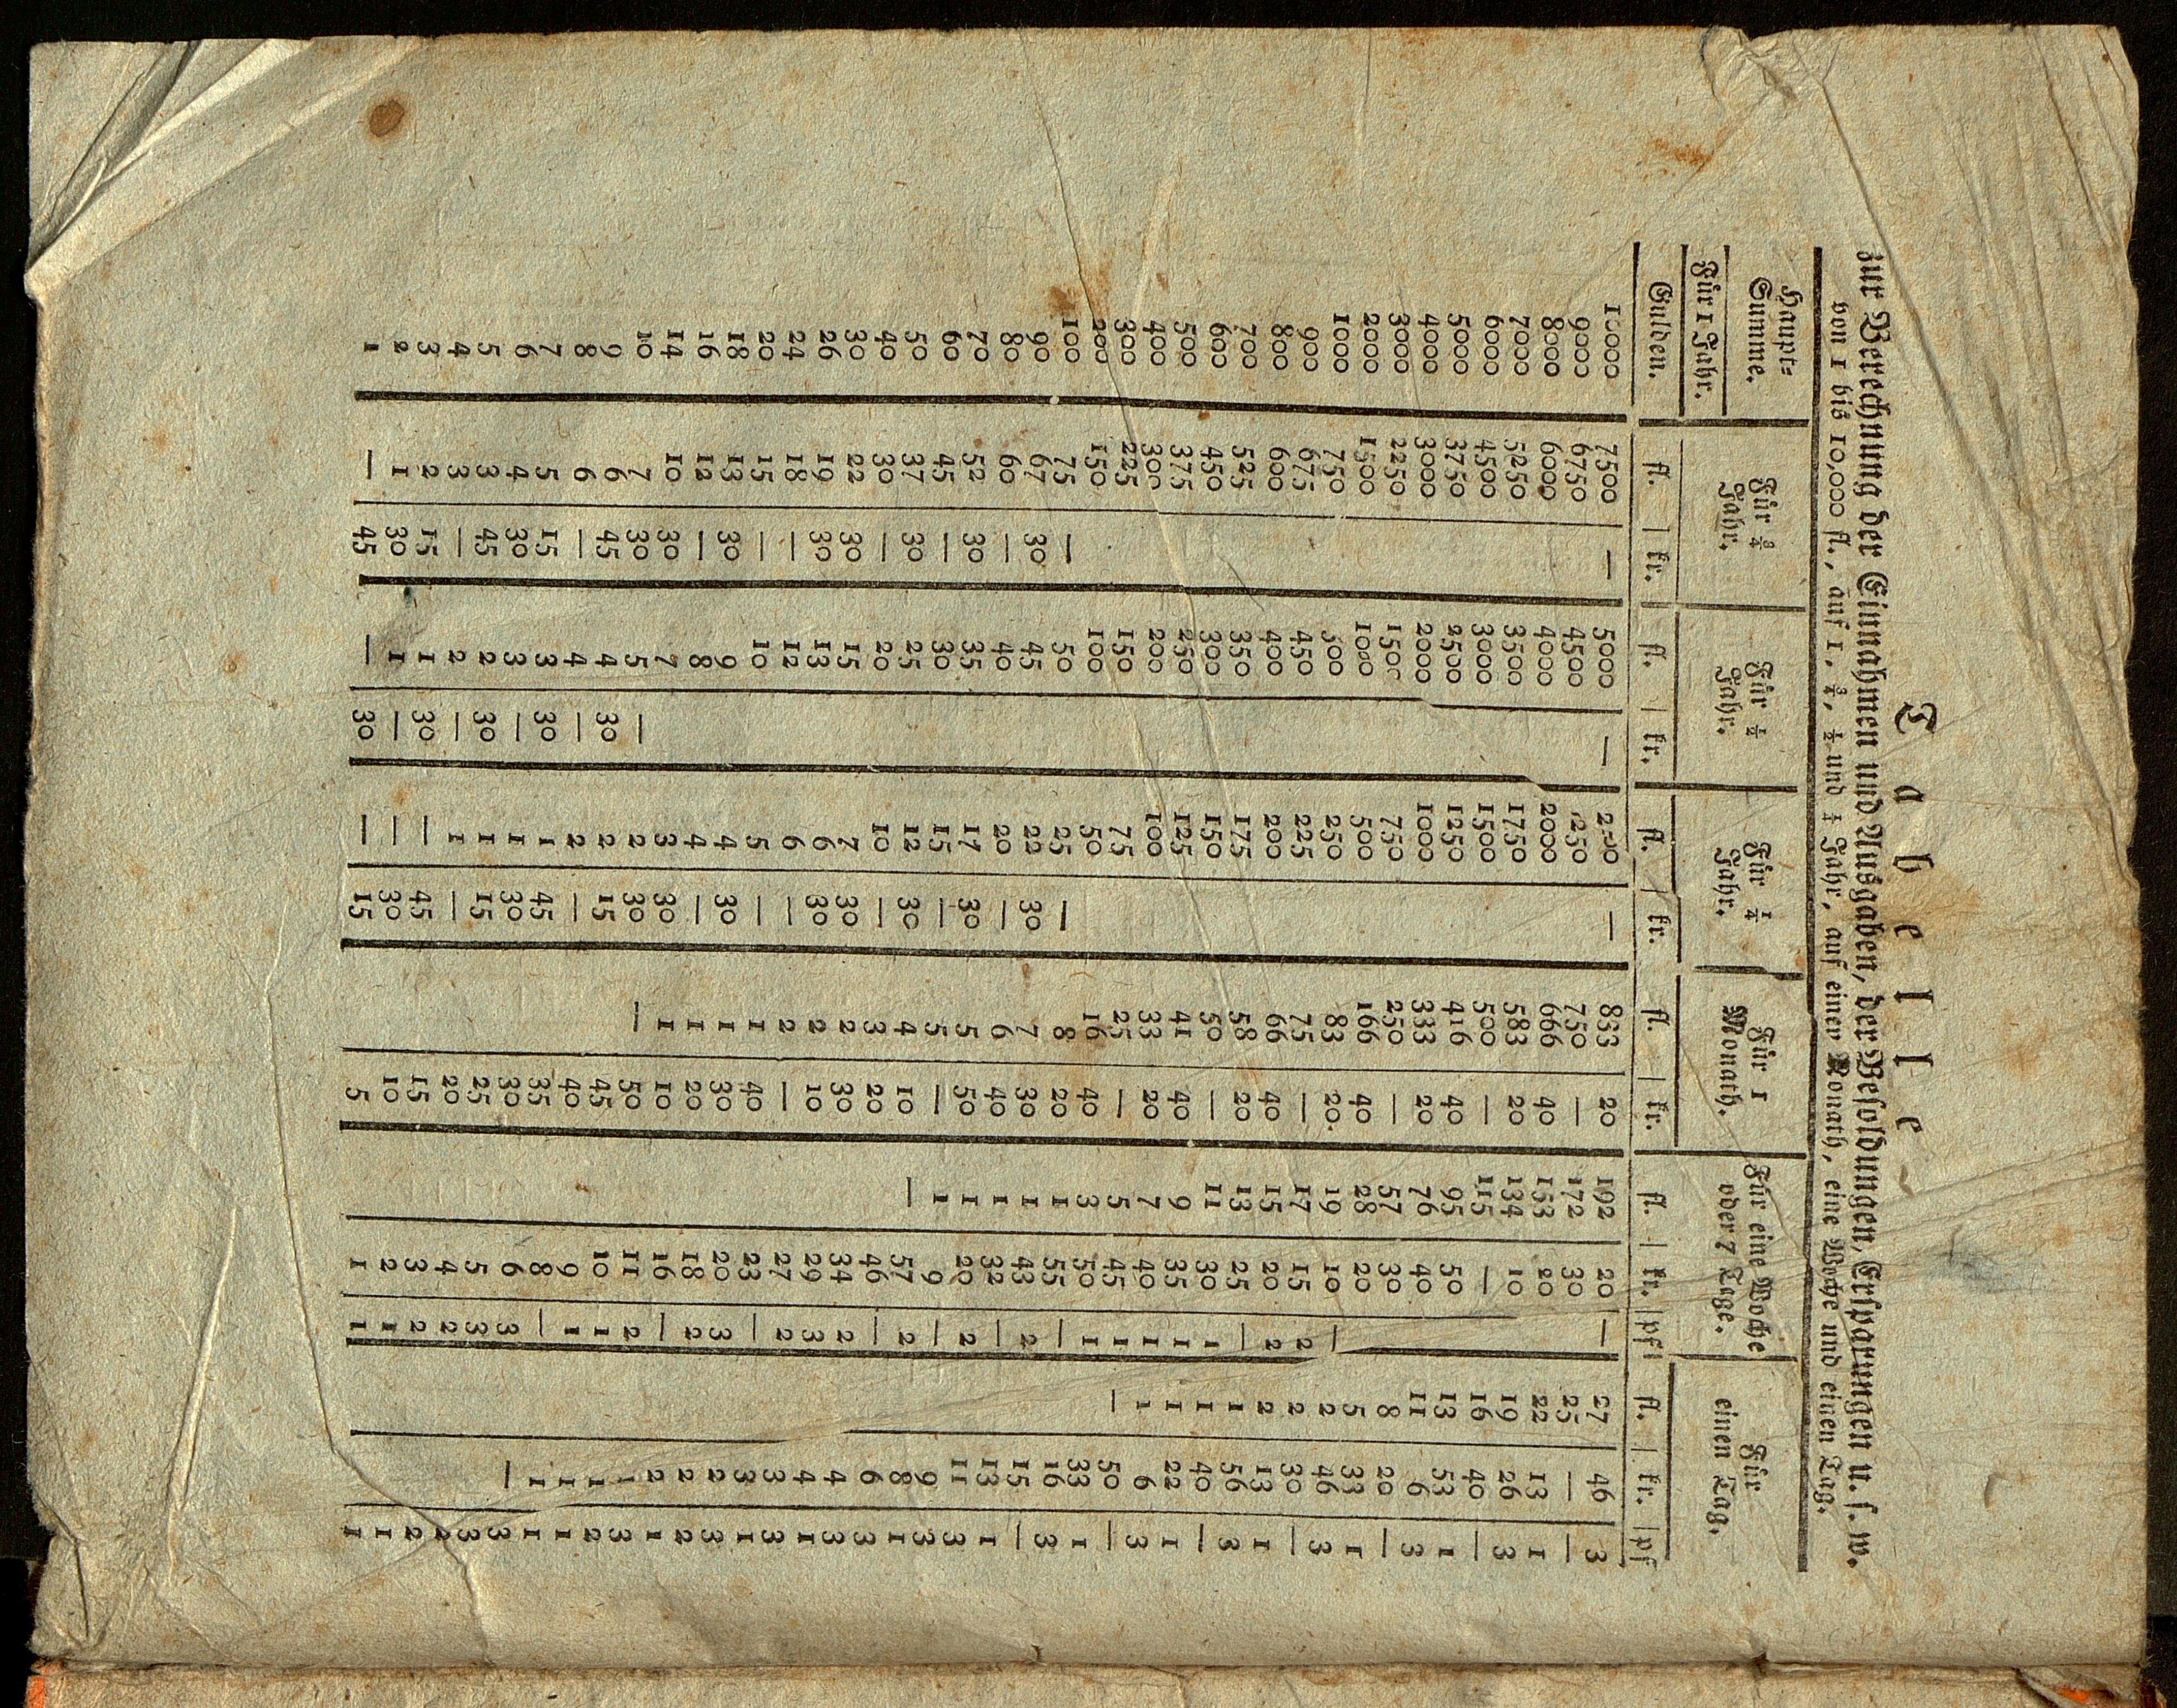 Tabelle
zur Berechnung der Einnahmen und Ausgaben, der Besoldungen, Ersparungen u. s. w.
von 1 bis 10,000 fl., auf 1, ¾, ½ und ¼ Jahr, auf einen Monath, eine Woche und einen Tag.
Haupt=Summe. Für 1 Jahr. | Für ¾ Jahr. | Für ½ Jahr. | Für ¼ Jahr. | Für 1 Monath. | Für eine Woche oder 7 Tage. | Für einen Tag.
Gulden. | fl. | kr. | fl. | kr. | fl. | kr. | fl. | kr. | fl. | kr. | pf | fl. | kr. | pf
10000 | 7500 | — | 5000 | — | 2500 | — | 833 | 20 | 192 | 20 | — | 27 | 46 | 3
9000 | 6750 | | 4500 | | 2250 | | 750 | — | 172 | 30 | | 25 | — | —
8000 | 6000 | | 4000 | | 2000 | | 666 | 40 | 153 | 20 | | 22 | 13 | 1
7000 | 5250 | | 3500 | | 1750 | | 583 | 20 | 134 | 10 | | 19 | 26 | 3
6000 | 4500 | | 3000 | | 1500 | | 500 | — | 115 | — | | 16 | 40 | —
5000 | 3750 | | 2500 | | 1250 | | 416 | 40 | 95 | 50 | | 13 | 53 | 1
4000 | 3000 | | 2000 | | 1000 | | 333 | 20 | 76 | 40 | | 11 | 6 | 3
3000 | 2250 | | 1500 | | 750 | | 250 | — | 57 | 30 | | 8 | 20 | —
2000 | 1500 | | 1000 | | 500 | | 166 | 40 | 28 | 20 | | 5 | 33 | 1
1000 | 750 | | 500 | | 250 | | 83 | 20. | 19 | 10 | — | 2 | 46 | 3
900 | 675 | | 450 | | 225 | | 75 | — | 17 | 15 | 2 | 2 | 30 | —
800 | 600 | | 400 | | 200 | | 66 | 40 | 15 | 20 | 2 | 2 | 13 | 1
700 | 525 | | 350 | | 175 | | 58 | 20 | 13 | 25 | — | 1 | 56 | 3
600 | 450 | | 300 | | 150 | | 50 | — | 11 | 30 | 1 | 1 | 40 | —
500 | 375 | | 250 | | 125 | | 41 | 40 | 9 | 35 | 1 | 1 | 22 | 1
400 | 300 | | 200 | | 100 | | 33 | 20 | 7 | 40 | 1 | 1 | 6 | 3
300 | 225 | | 150 | | 75 | | 25 | — | 5 | 45 | 1 | — | 50 | —
200 | 150 | | 100 | | 50 | | 16 | 40 | 3 | 50 | 1 | | 33 | 1
100 | 75 | — | 50 | | 25 | — | 8 | 20 | 1 | 55 | — | | 16 | 3
90 | 67 | 30 | 45 | | 22 | 30 | 7 | 30 | 1 | 43 | 2 | | 15 | —
80 | 60 | — | 40 | | 20 | — | 6 | 40 | 1 | 32 | — | | 13 | 1
70 | 52 | 30 | 35 | | 17 | 30 | 5 | 50 | 1 | 20 | 2 | | 11 | 3
60 | 45 | — | 30 | | 15 | — | 5 | — | 1 | 9 | — | | 9 | 3
50 | 37 | 30 | 25 | | 12 | 30 | 4 | 10 | — | 57 | 2 | | 8 | 1
40 | 30 | — | 20 | | 10 | — | 3 | 20 | | 46 | — | | 6 | 3
30 | 22 | 30 | 15 | | 7 | 30 | 2 | 30 | | 34 | 2 | | 4 | 3
26 | 19 | 30 | 13 | | 6 | 30 | 2 | 10 | | 29 | 3 | | 4 | 1
24 | 18 | — | 12 | | 6 | — | 2 | — | | 27 | 2 | | 3 | 3
20 | 15 | — | 10 | | 5 | — | 1 | 40 | | 23 | — | | 3 | 1
18 | 13 | 30 | 9 | | 4 | 30 | 1 | 30 | | 20 | 3 | | 2 | 3
16 | 12 | — | 8 | | 4 | — | 1 | 20 | | 18 | 2 | | 2 | 2
14 | 10 | 30 | 7 | | 3 | 30 | 1 | 10 | | 16 | — | | 2 | 1
10 | 7 | 30 | 5 | — | 2 | 30 | — | 50 | | 11 | 2 | | 1 | 3
9 | 6 | 45 | 4 | 30 | 2 | 15 | | 45 | | 10 | 1 | | 1 | 2
8 | 6 | — | 4 | — | 2 | — | | 40 | | 9 | 1 | | 1 | 1
7 | 5 | 15 | 3 | 30 | 1 | 45 | | 35 | | 8 | — | | 1 | 1
6 | 4 | 30 | 3 | — | 1 | 30 | | 30 | | 6 | 3 | | — | 3
5 | 3 | 45 | 2 | 30 | 1 | 15 | | 25 | | 5 | 3 | | | 3
4 | 3 | — | 2 | — | 1 | — | | 20 | | 4 | 2 | | | 2
3 | 2 | 15 | 1 | 30 | — | 45 | | 15 | | 3 | 2 | | | 2
2 | 1 | 30 | 1 | — | — | 30 | | 10 | | 2 | 1 | | | 1
1 | — | 45 | — | 30 | — | 15 | | 5 | | 1 | 1 | | | 1